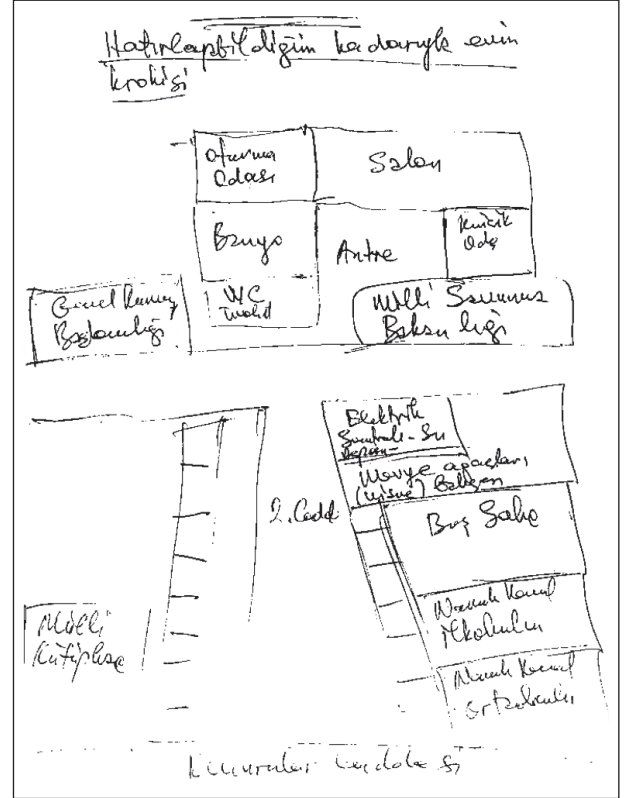 Hatırlayabildiğim kadarıyla evin
krokisi
Oturma
Odası
Salon
Banyo
Antre
Küçük
Oda
WC
Tuvalet
Genel Kurmay
Başkanlığı
Milli Savunma
Bakanlığı
Elektrik
Santralı - Su
Deposu
Meyve ağaçları
(vişne)
2. Cadd
Boş Saha
Milli
Kütüphane
Namık Kemal
İlkokulu
Namık Kemal
Ortaokulu
Caddesi